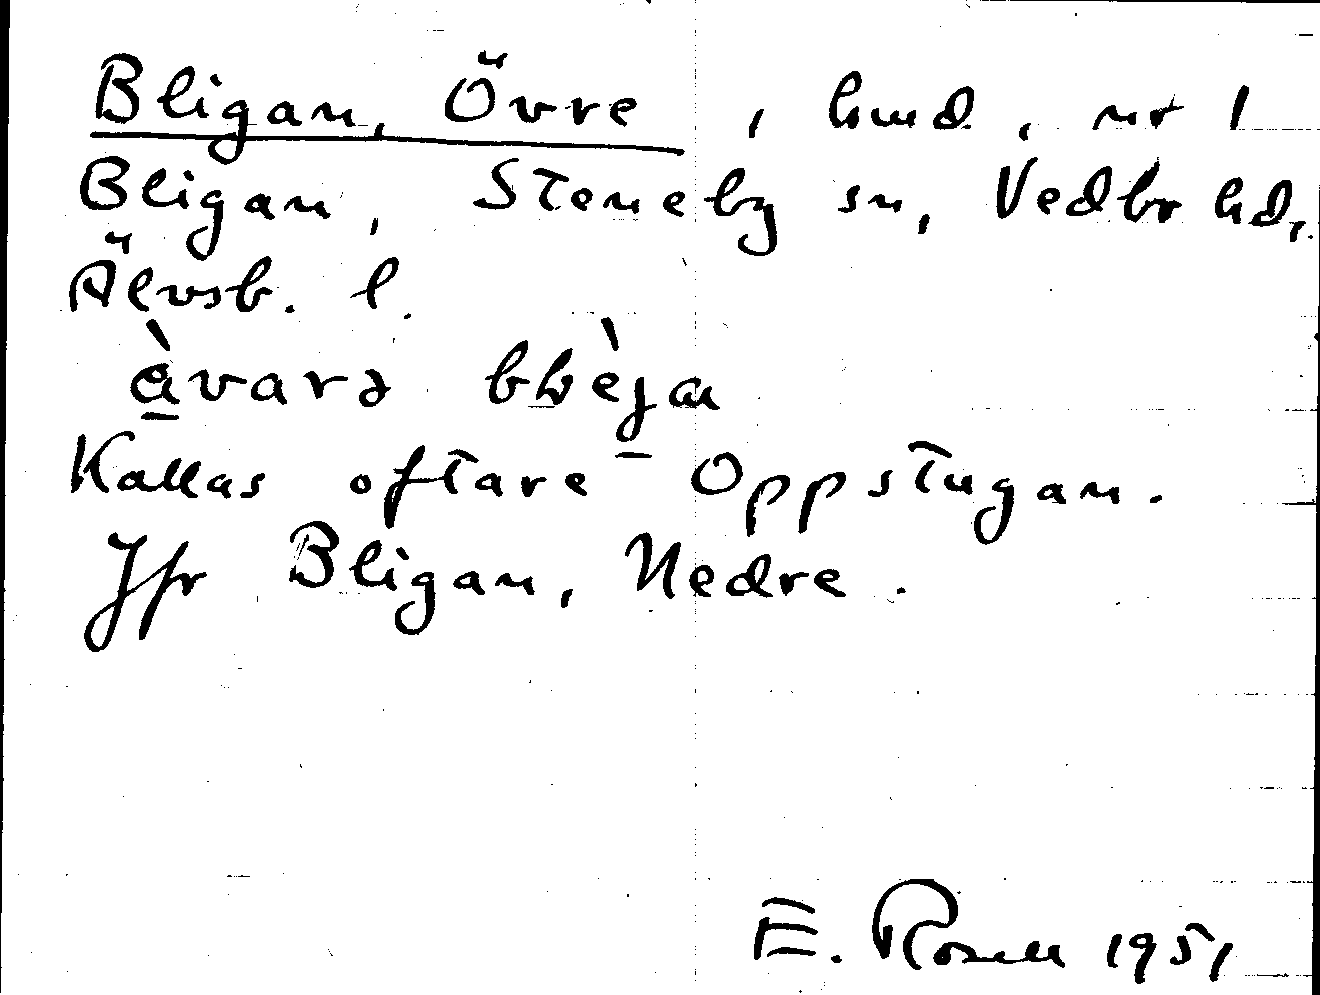 Bligan, Övre, hmd, nr 1
Bligan, Steneby sn, Vedbo hd,
Älvsb. l.
Kallas oftare Oppstugan.
Jfr Bligan, Nedre.
E. Rosell 1951